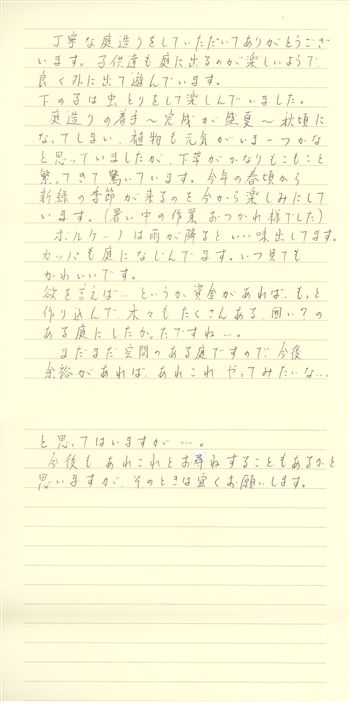 丁寧な庭造りをしていただいてありがとうござ
います。子供達も庭に出るのが楽しいようで、
良く外に出て遊んでいます。
下の子は虫とりをして楽しんでいました。
庭造りの着手～完成が盛夏～秋頃に
なってしまい、植物も元気がいま一つかな
と思っていましたが、下草がかなりもこもこと
繁ってきて驚いています。今年の春頃から
新緑の季節が来るのを今から楽しみにして
います。(暑い中の作業おつかれ様でした)
ポルケーノは雨が降るといい味出してます。
カッパも庭になじんでます。いつ見ても
かわいいです。
欲を言えば…というか、資金があれば、もっと
作り込んで、木々もたくさんある、囲い?の
ある庭にしたかったですね…。
まだまだ空間のある庭ですので、今後
余裕があれば、あれこれやってみたいな…
と思ってはいますが…。
今後もあれこれとお尋ねすることもあるかと
思いますが、そのときは宜しくお願いします。